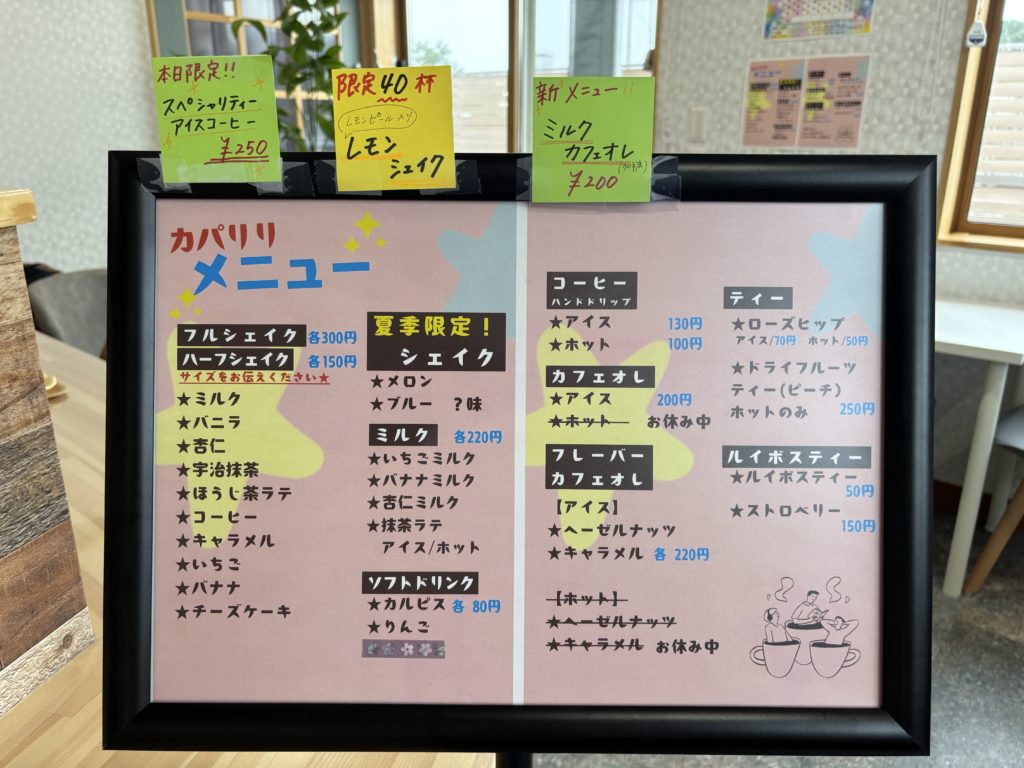 本日限定!!
スペシャリティー
アイスコーヒー
¥250
限定40杯
レモンピール入り
レモン
シェイク
新メニュー!!
ミルク
カフェオレ
¥200
カパリリ
メニュー
フルシェイク 各300円
ハーフシェイク 各150円
サイズをお伝えください★
★ミルク
★バニラ
★杏仁
★宇治抹茶
★ほうじ茶ラテ
★コーヒー
★キャラメル
★いちご
★バナナ
★チーズケーキ
夏季限定！
シェイク
★メロン
★ブルー ？味
ミルク 各220円
★いちごミルク
★バナナミルク
★杏仁ミルク
★抹茶ラテ
アイス/ホット
ソフトドリンク
★カルピス 各 80円
★りんご
コーヒー
ハンドドリップ
★アイス 130円
★ホット 100円
カフェオレ
★アイス 200円
★ホット お休み中
フレーバー
カフェオレ
【アイス】
★ヘーゼルナッツ
★キャラメル 各 220円
【ホット】
★ヘーゼルナッツ
★キャラメル お休み中
ティー
★ローズヒップ
アイス/70円 ホット/50円
★ドライフルーツ
ティー(ピーチ)
ホットのみ 250円
ルイボスティー
★ルイボスティー
50円
★ストロベリー
150円
メニュー